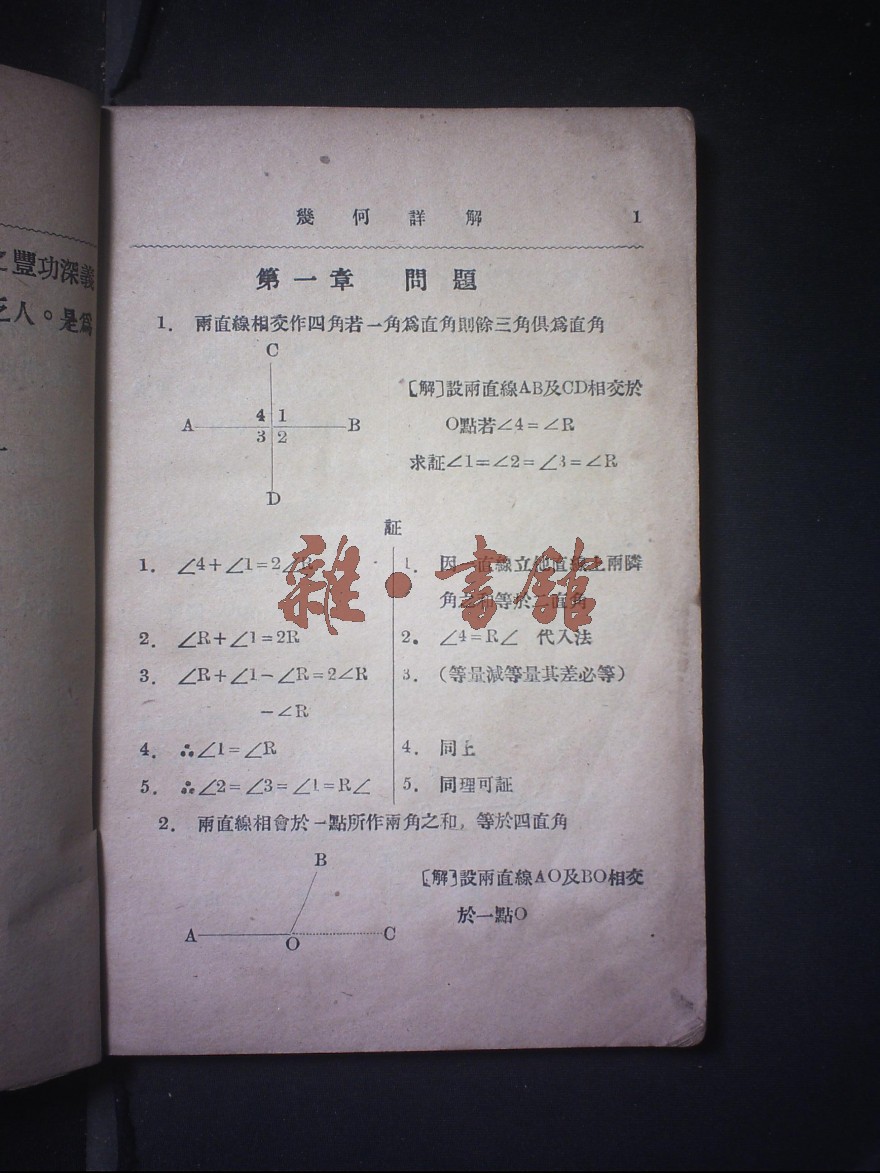 之豐功深義
乏人。是爲
幾何詳解 1
第一章 問題
1. 兩直線相交作四角若一角爲直角則餘三角俱爲直角
C
A 4 1 B
3 2
D
〔解〕設兩直線AB及CD相交於
O點若∠4=∠R
求証∠1=∠2=∠3=∠R
証
1. ∠4+∠1=2∠R
1. 因一直線立他直線上兩隣
角之和等於二直角
2. ∠R+∠1=2R
2. ∠4=R∠ 代入法
3. ∠R+∠1-∠R=2∠R
-∠R
3. (等量減等量其差必等)
4. ∴∠1=∠R
4. 同上
5. ∴∠2=∠3=∠1=R∠
5. 同理可証
雜·書館
2. 兩直線相會於一點所作兩角之和,等於四直角
B
A O C
〔解〕設兩直線AO及BO相交
於一點O